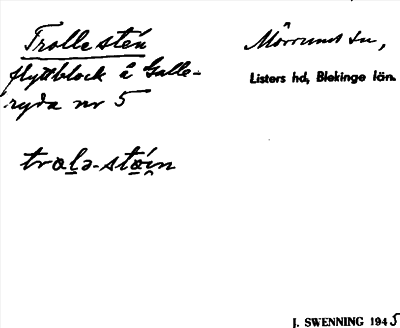 Trollestén
flyttblock å Galle-
ryda nr 5
Mörrums sn,
Listers hd, Blekinge län.
trolə-stó̱i̯n
J. SWENNING 1945